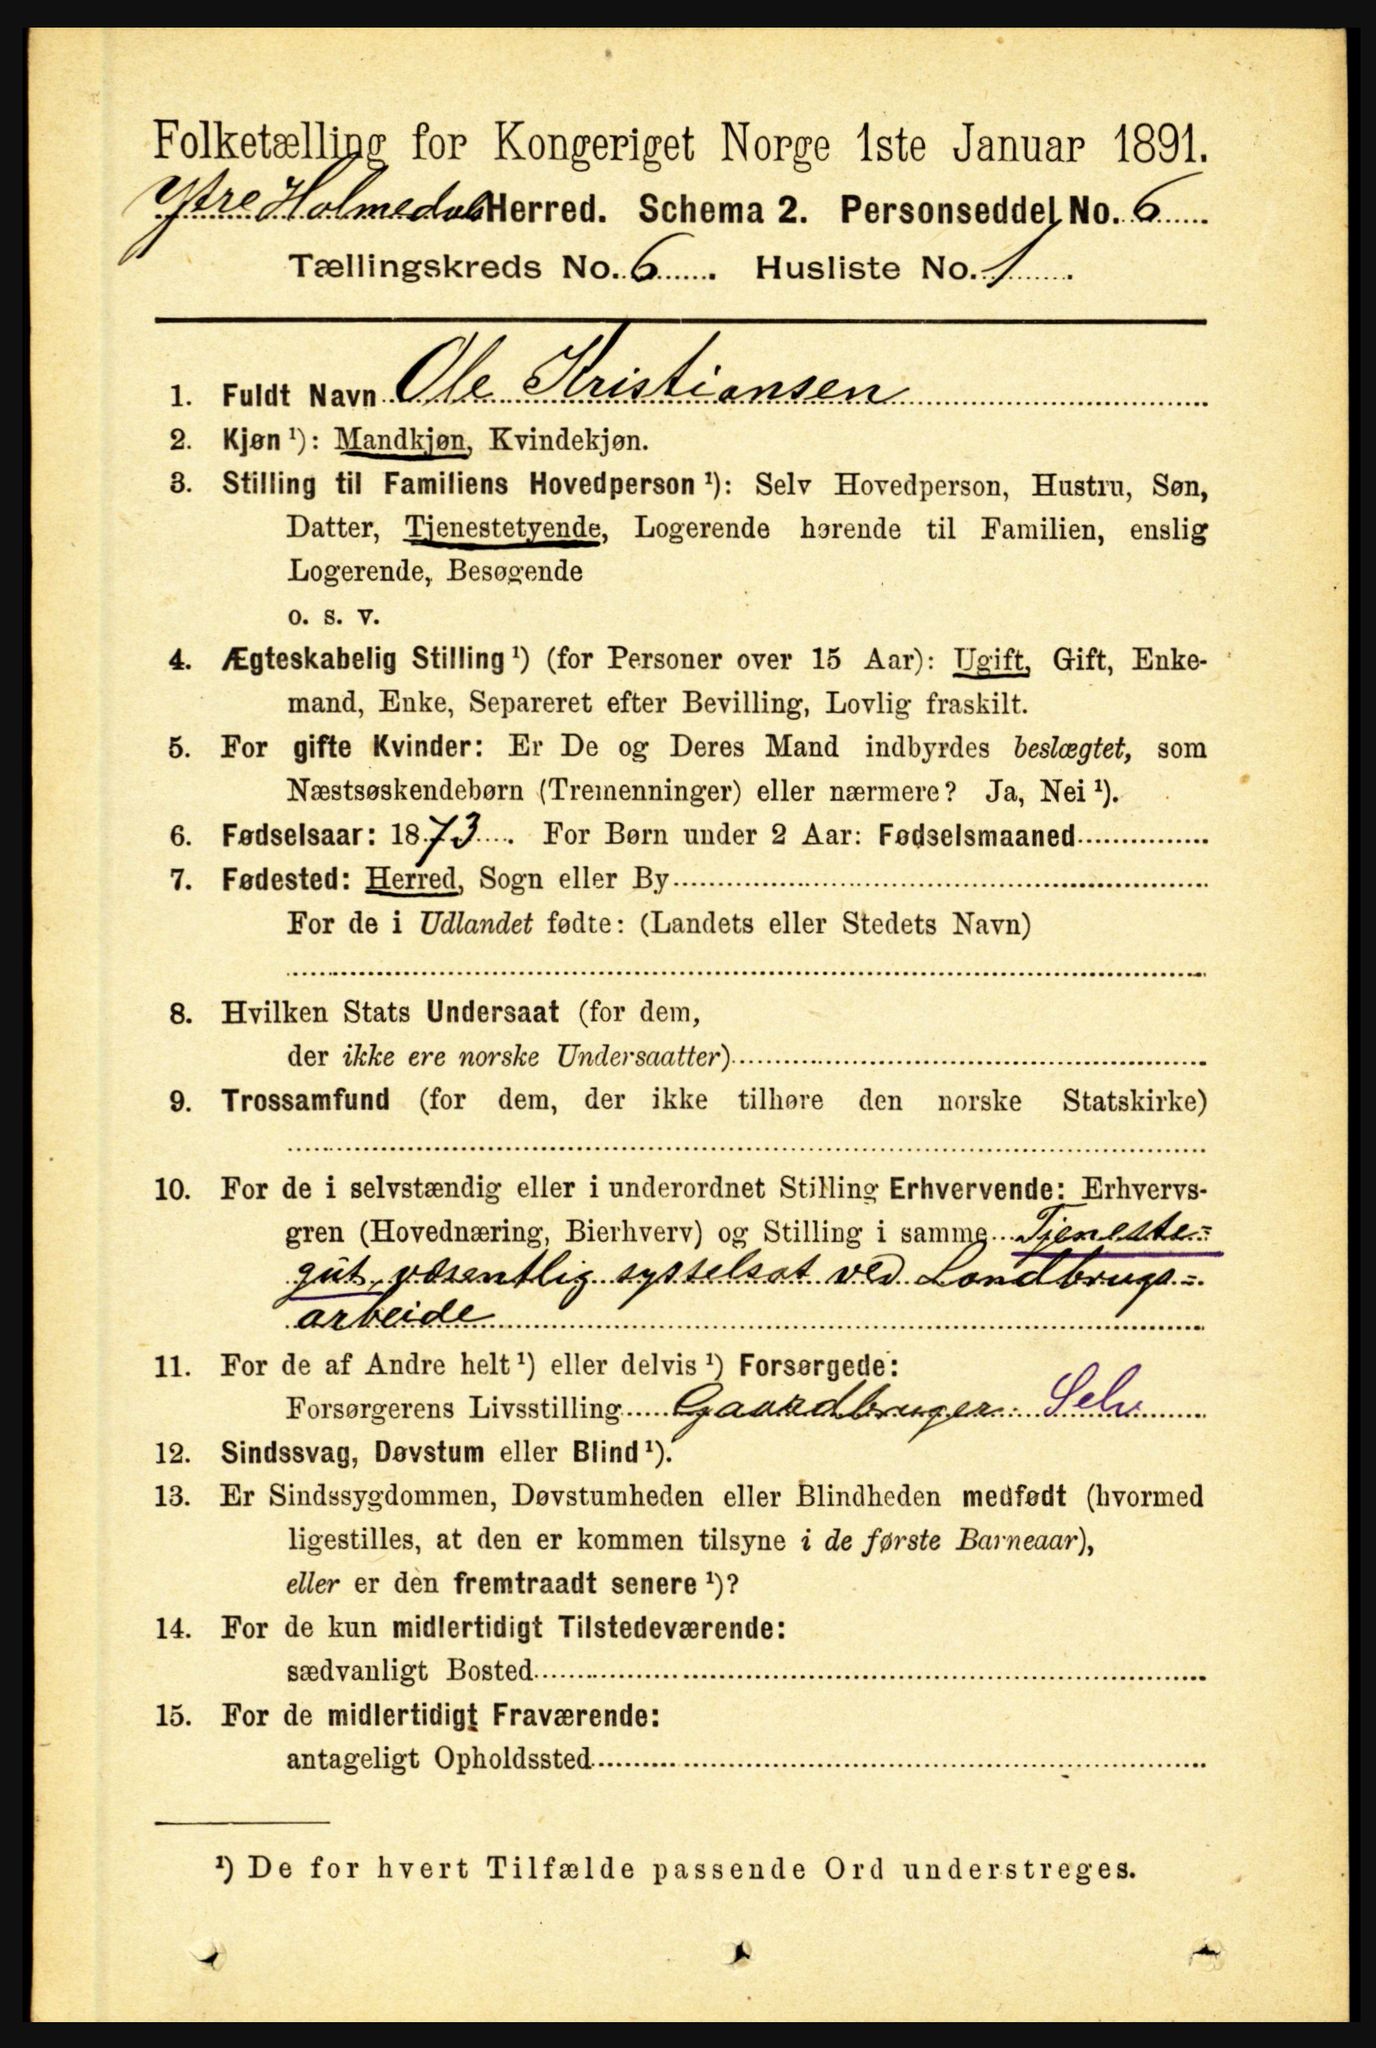 Folketælling for Kongeriget Norge 1ste Januar 1891.
Ytre Holmedal Herred. Schema 2. Personseddel No. 6
Tællingskreds No. 6. Husliste No. 1.
1. Fuldt Navn Ole Kristiansen
2. Kjøn ¹): Mandkjøn, Kvindekjøn.
3. Stilling til Familiens Hovedperson ¹): Selv Hovedperson, Hustru, Søn,
Datter, Tjenestetyende, Logerende hørende til Familien, enslig
Logerende, Besøgende
o. s. v.
4. Ægteskabelig Stilling ¹) (for Personer over 15 Aar): Ugift, Gift, Enke-
mand, Enke, Separeret efter Bevilling, Lovlig fraskilt.
5. For gifte Kvinder: Er De og Deres Mand indbyrdes beslægtet, som
Næstsøskendebørn (Tremenninger) eller nærmere? Ja, Nei ¹).
6. Fødselsaar: 1873. For Børn under 2 Aar: Fødselsmaaned
7. Fødested: Herred, Sogn eller By
For de i Udlandet fødte: (Landets eller Stedets Navn)
8. Hvilken Stats Undersaat (for dem,
der ikke ere norske Undersaatter)
9. Trossamfund (for dem, der ikke tilhøre den norske Statskirke)
10. For de i selvstændig eller i underordnet Stilling Erhvervende: Erhvervs-
gren (Hovednæring, Bierhverv) og Stilling i samme Tjeneste=
gut, væsentlig sysselsat ved Landbrugs=
arbeide
11. For de af Andre helt ¹) eller delvis ¹) Forsørgede:
Forsørgerens Livsstilling Gaardbruger. Selv
12. Sindssvag, Døvstum eller Blind ¹).
13. Er Sindssygdommen, Døvstumheden eller Blindheden medfødt (hvormed
ligestilles, at den er kommen tilsyne i de første Barneaar),
eller er den fremtraadt senere ¹)?
14. For de kun midlertidigt Tilstedeværende:
sædvanligt Bosted
15. For de midlertidigt Fraværende:
antageligt Opholdssted
¹) De for hvert Tilfælde passende Ord understreges.